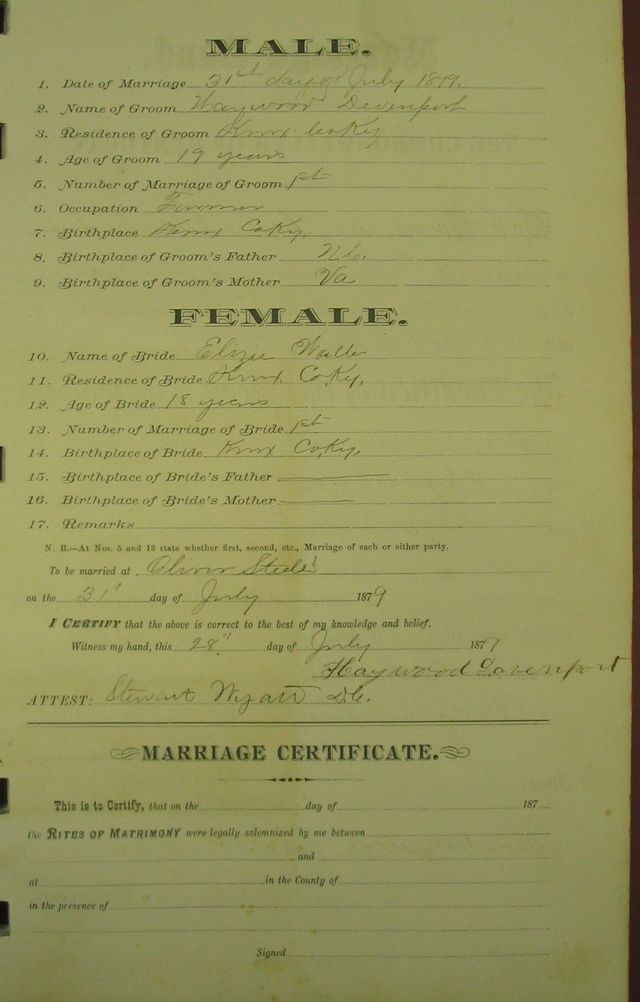 MALE.
1. Date of Marriage 31st day of July 1879.
2. Name of Groom Haywood Devenport
3. Residence of Groom Knox Co Ky
4. Age of Groom 19 years
5. Number of Marriage of Groom 1st
6. Occupation Farmer
7. Birthplace Knox Co Ky.
8. Birthplace of Groom's Father N.C.
9. Birthplace of Groom's Mother Va
FEMALE.
10. Name of Bride
11. Residence of Bride Knox Co Ky.
12. Age of Bride 18 years
13. Number of Marriage of Bride 1st
14. Birthplace of Bride Knox Co Ky
15. Birthplace of Bride's Father
16. Birthplace of Bride's Mother
17. Remarks
N. B.—At Nos. 5 and 13 state whether first, second, etc., Marriage of each or either party.
To be married at Oliver Steele's
on the 31" day of July 1879
I CERTIFY that the above is correct to the best of my knowledge and belief.
Witness my hand, this 28" day of July 1879
Haywood Davenport
ATTEST: Stewart Wyatt D.C.
MARRIAGE CERTIFICATE.
This is to Certify, that on the day of 187
the RITES OF MATRIMONY were legally solemnized by me between
and
at in the County of
in the presence of
Signed